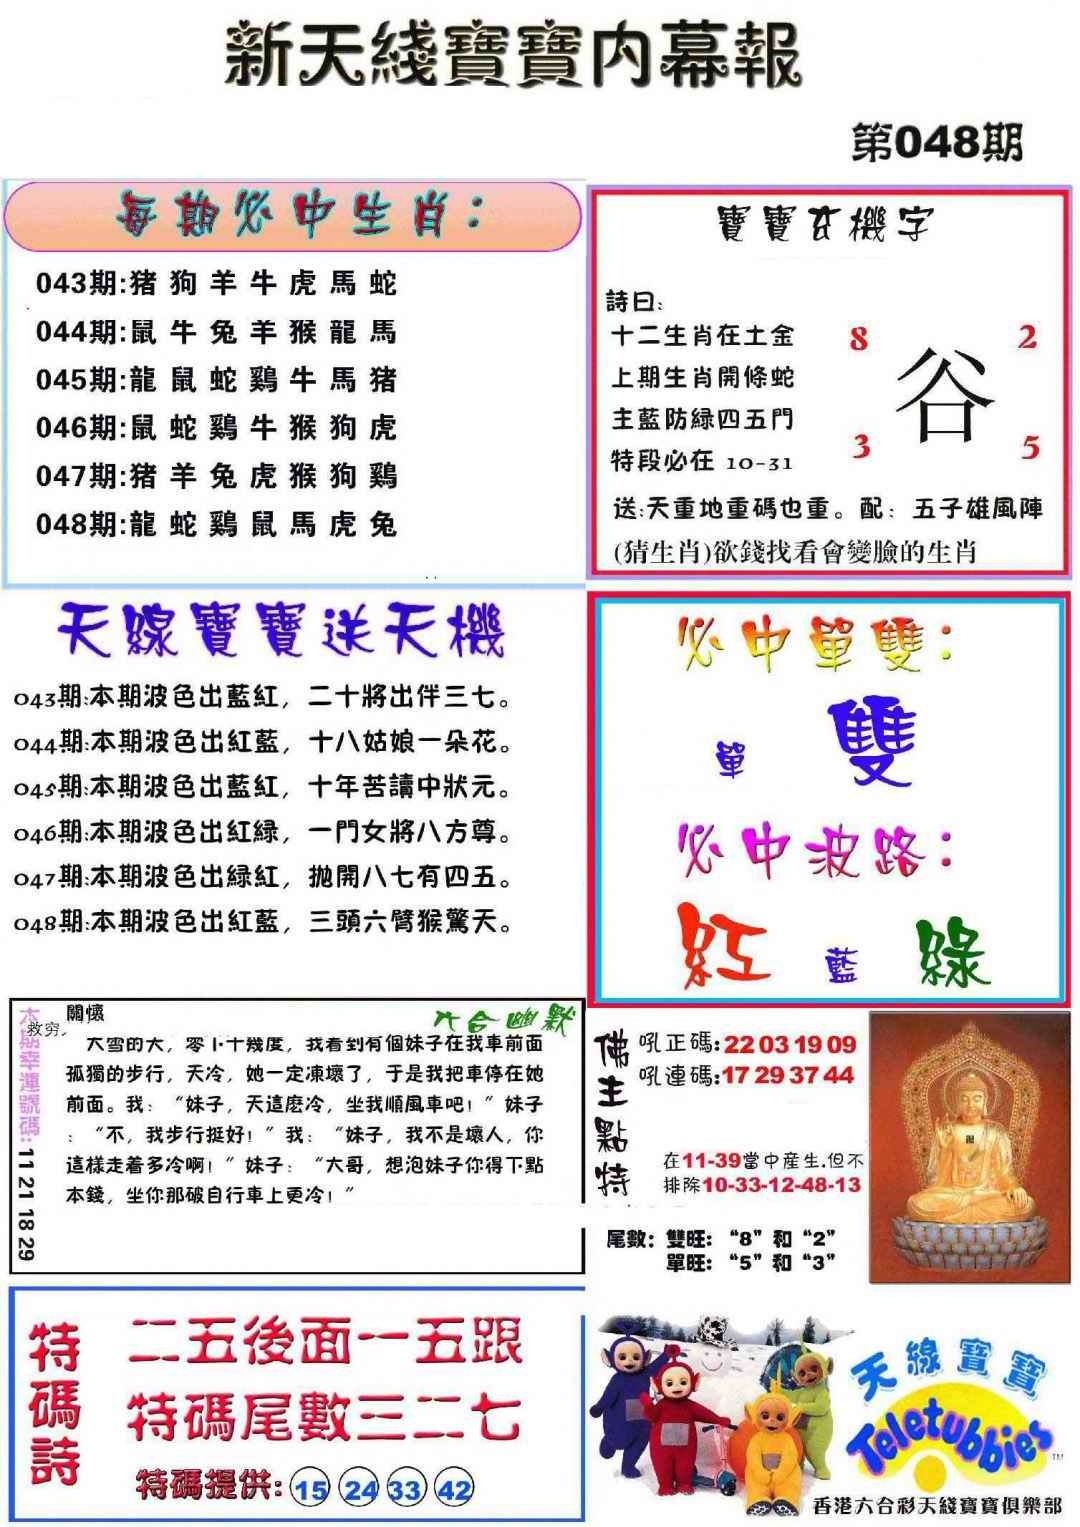 新天綫寶寶内幕報
第048期
每期必中生肖：
043期:猪狗羊牛虎馬蛇
044期:鼠牛兔羊猴龍馬
045期:龍鼠蛇鷄牛馬猪
046期:鼠蛇鷄牛猴狗虎
047期:猪羊兔虎猴狗鷄
048期:龍蛇鷄鼠馬虎兔
寶寶玄機字
詩曰:
十二生肖在土金
上期生肖開條蛇
主藍防緑四五門
特段必在 10-31
8 2
谷
3 5
送:天重地重碼也重。配：五子雄風陣
(猜生肖)欲錢找看會變臉的生肖
天線寶寶送天機
043期:本期波色出藍紅，二十將出伴三七。
044期:本期波色出紅藍，十八姑娘一朵花。
045期:本期波色出藍紅，十年苦讀中狀元。
046期:本期波色出紅緑，一門女將八方尊。
047期:本期波色出緑紅，抛開八七有四五。
048期:本期波色出紅藍，三頭六臂猴驚天。
必中單雙：
單 雙
必中波路：
紅 藍 綠
本期幸運號碼:11 21 18 29
關懷
救穷。
六合幽默
大雪的天，零下十幾度，我看到有個妹子在我車前面
孤獨的步行，天冷，她一定凍壞了，于是我把車停在她
前面。我：“妹子，天這麽冷，坐我順風車吧！”妹子
：“不，我步行挺好！”我：“妹子，我不是壞人，你
這樣走着多冷啊！”妹子：“大哥，想泡妹子你得下點
本錢，坐你那破自行車上更冷！”
佛主點特
吼正碼:22 03 19 09
吼連碼:17 29 37 44
在11-39當中産生.但不
排除10-33-12-48-13
尾數：雙旺：“8”和“2”
單旺：“5”和“3”
特碼詩
二五後面一五跟
特碼尾數三二七
特碼提供: 15 24 33 42
天線寶寶
Teletubbies
TM
香港六合彩天綫寶寶俱樂部